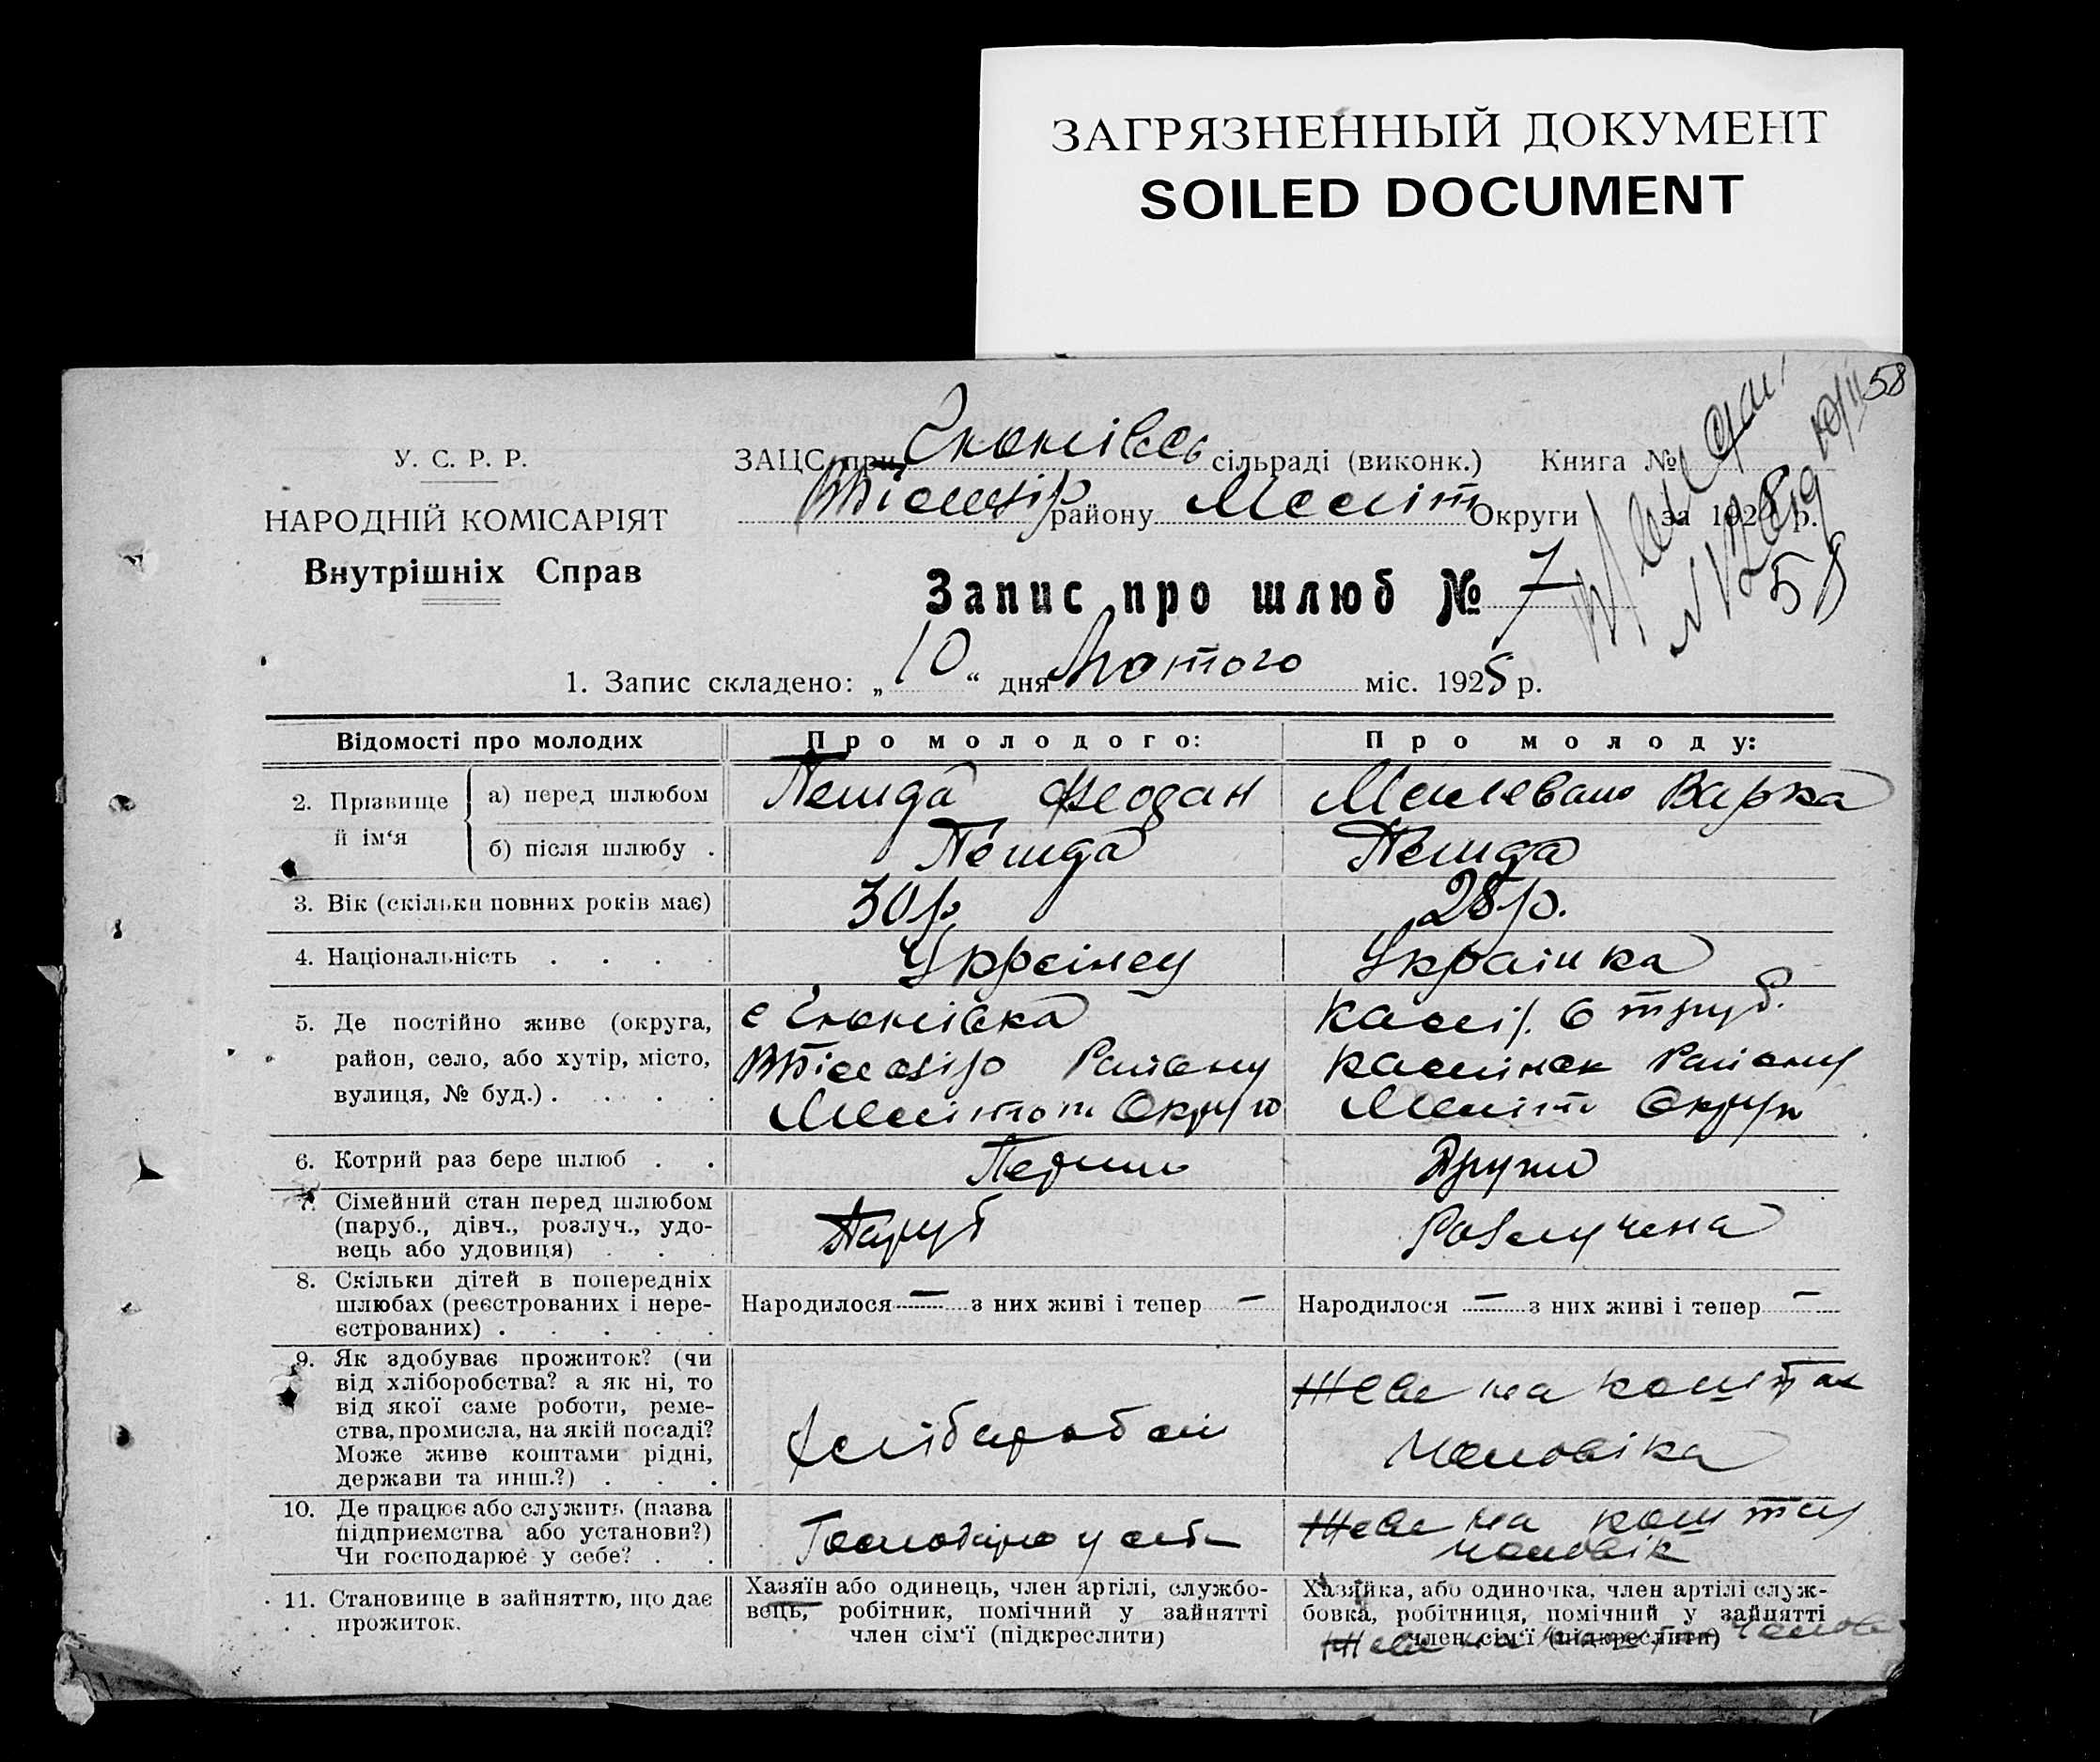 ЗАГРЯЗНЕННЫЙ ДОКУМЕНТ
SOILED DOCUMENT
58
У. С. Р. Р.
НАРОДНІЙ КОМІСАРІЯТ
Внутрішніх Справ
ЗАЦС при сільраді (виконк.) Книга №
району Меліт Округи за 192 р.
58
Запис про шлюб № 7
1. Запис складено: „10“ дня Лютого міс. 1925 р.
Відомості про молодих
Про молодого:
Про молоду:
2. Прізвище й ім‘я
а) перед шлюбом
Варка
б) після шлюбу .
3. Вік (скільки повних років має)
30 р
28 р.
4. Національність . . . .
Українец
Українка
5. Де постійно живе (округа,
район, село, або хутір, місто,
вулиця, № буд.) . . . .
Району
Мелітоп Округ
Району
Меліт Округи
6. Котрий раз бере шлюб . .
Перши
Други
7. Сімейний стан перед шлюбом
(паруб., дівч., розлуч., удо-
вець або удовиця) . . .
Паруб
Розлучена
8. Скільки дітей в попередніх
шлюбах (реєстрованих і нере-
єстрованих) . . . . .
Народилося — з них живі і тепер —
Народилося — з них живі і тепер —
9. Як здобуває прожиток? (чи
від хліборобства? а як ні, то
від якої саме роботи, реме-
ства, промисла, на якій посаді?
Може живе коштами рідні,
держави та инш.?) . . .
Живе на коштах
чоловіка
10. Де працює або служить (назва
підприємства або установи?)
Чи господарює у себе? . .
у себе
Живе на кошти
чоловік
11. Становище в зайняттю, що дає
прожиток.
Хазяїн або одинець, член артілі, службо-
вець, робітник, помічний у зайнятті
член сім‘ї (підкреслити)
Хазяйка, або одиночка, член артілі служ-
бовка, робітниця, помічний у зайнятті
член сім‘ї (підкреслити)